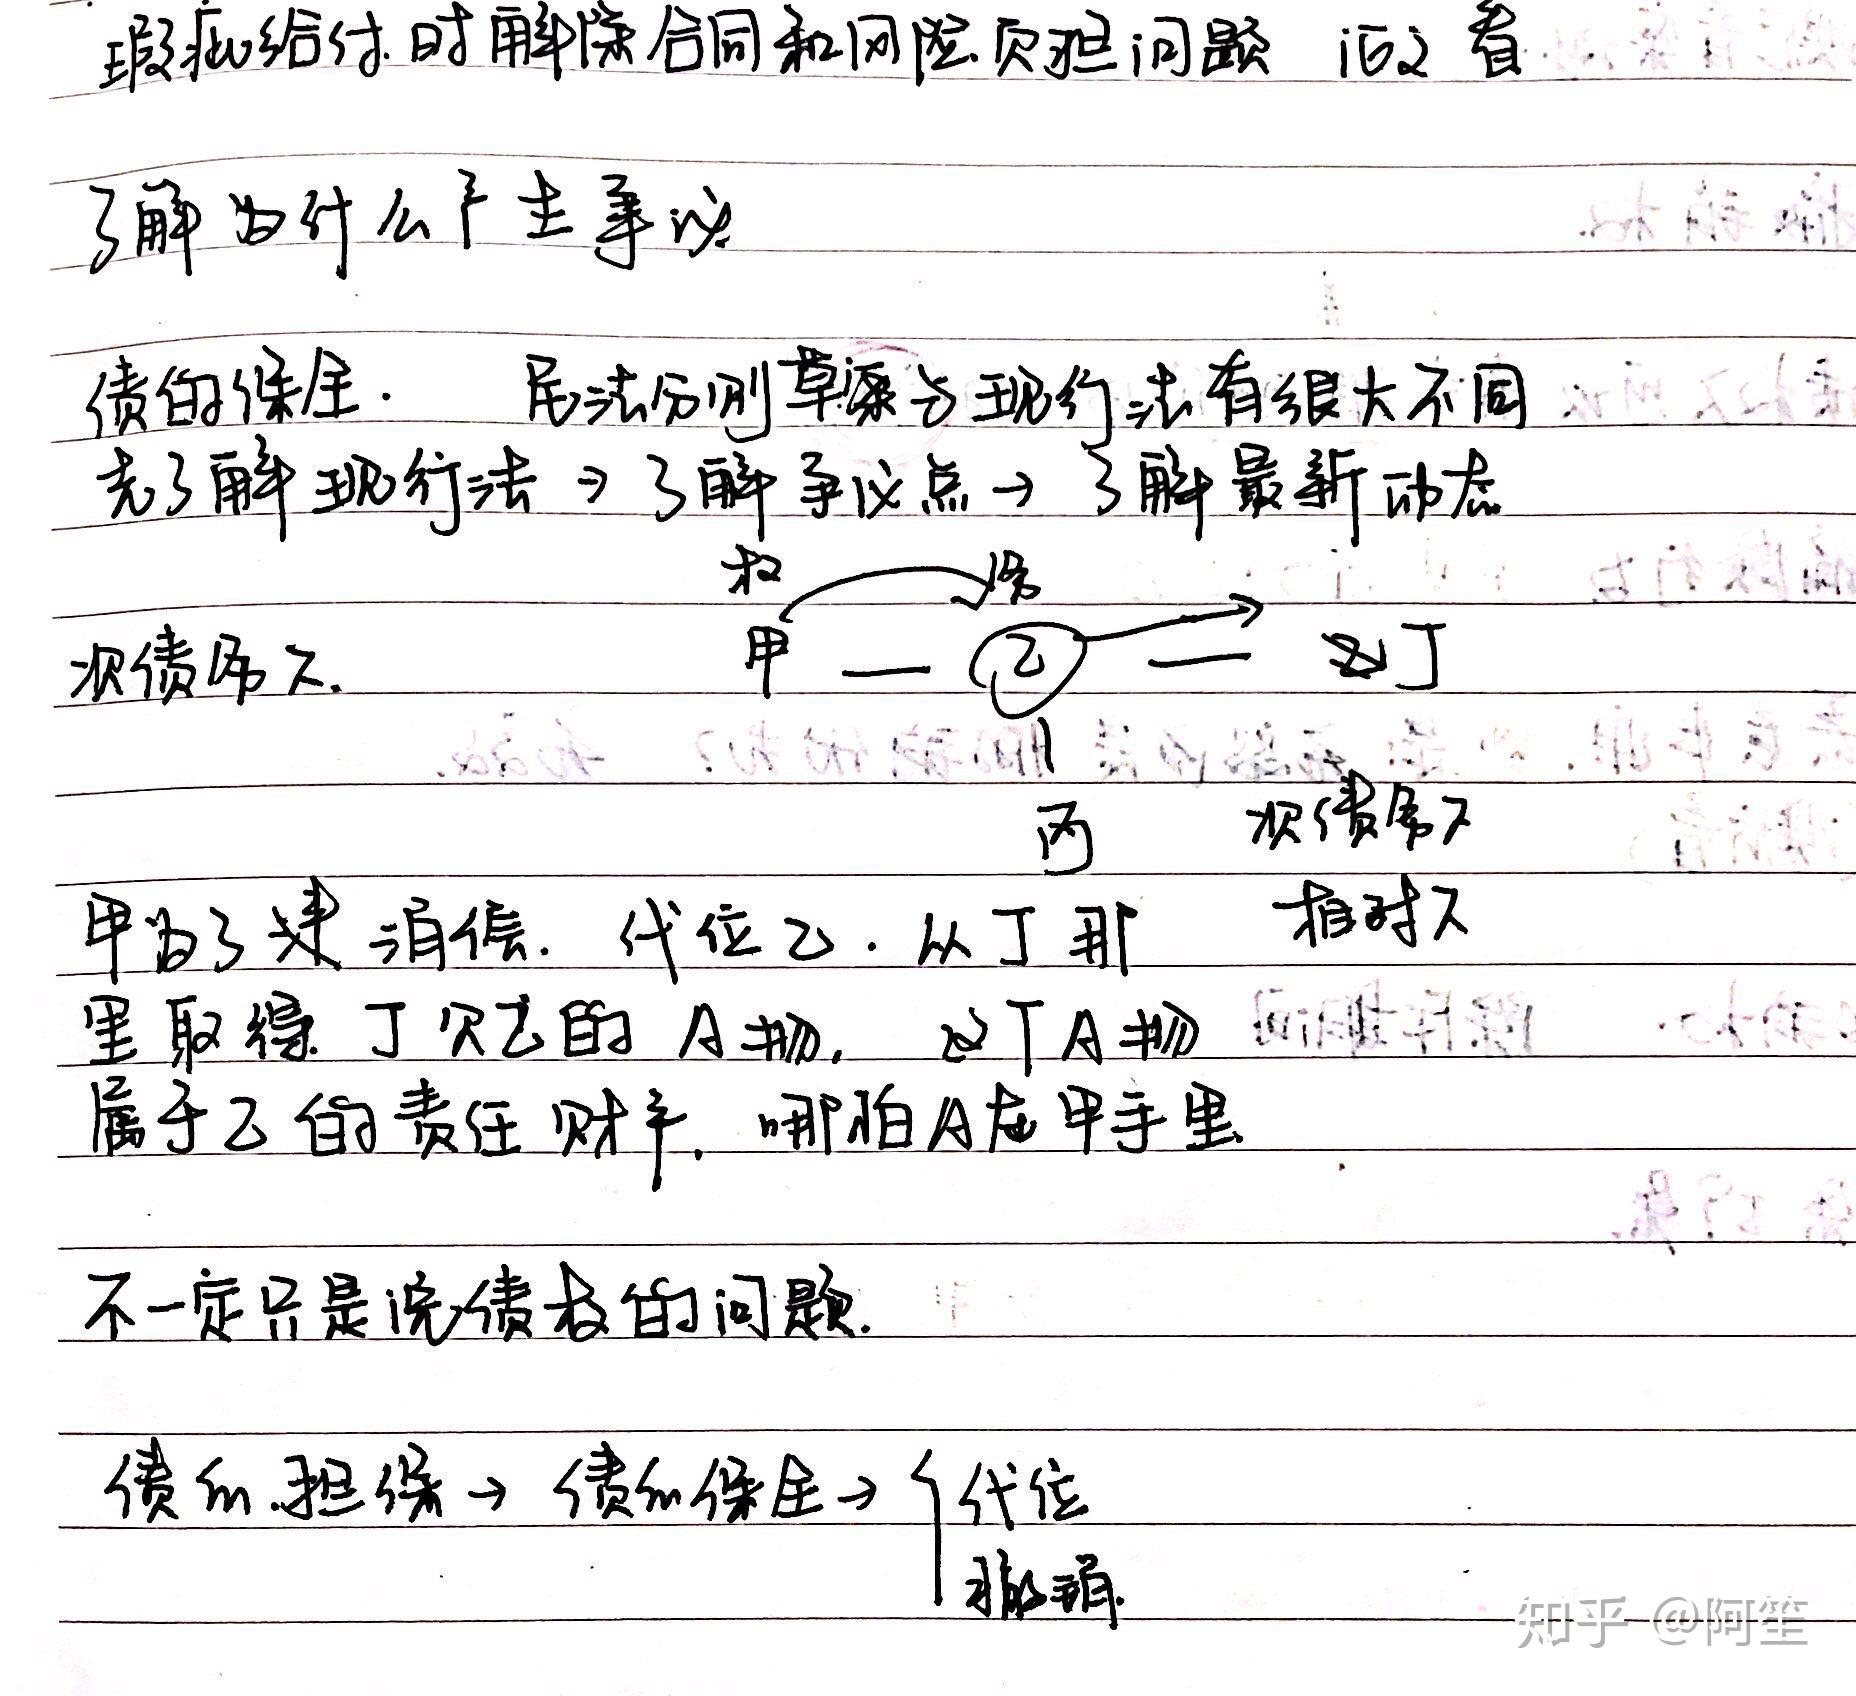 瑕疵给付时解除合同和风险负担问题 论文 看
了解为什么产生争议
债的保全. 民法分则草案与现行法有很大不同
先了解现行法→了解争议点→了解最新动态
权 债务
次债务人. 甲 — 乙 — 丁
丙 次债务人
相对人
甲为了 消债. 代位乙. 从丁那
里取得 丁欠乙的 A物, 这下A物
属于乙的责任财产, 哪怕A在甲手里
不一定只是说债权的问题.
债的担保→债的保全→{代位
撤销.
知乎 @阿笙